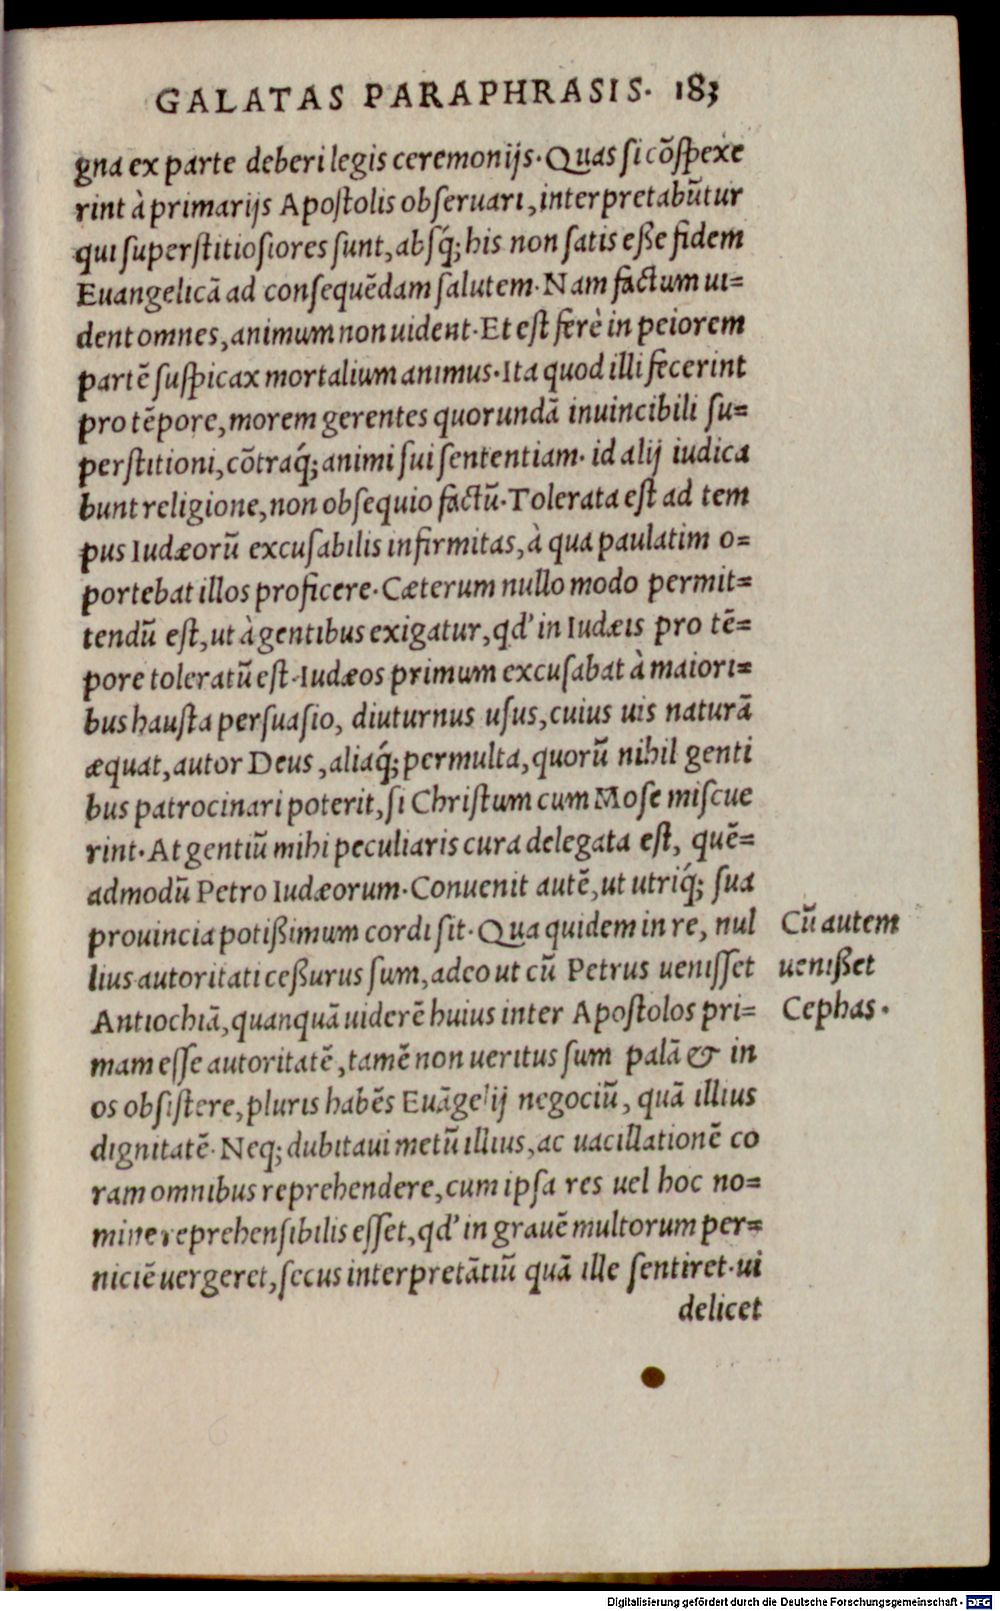 GALATAS PARAPHRASIS. 183
gna ex parte deberi legis ceremonijs. Quas si cõspexe
rint à primarijs Apostolis obseruari, interpretabũtur
qui superstitiosiores sunt, absq́; his non satis eße fidem
Euangelicã ad consequẽdam salutem. Nam factum ui=
dent omnes, animum non uident. Et est ferè in peiorem
partẽ suspicax mortalium animus. Ita quod illi fecerint
pro tẽpore, morem gerentes quorundã inuincibili su=
perstitioni, cõtraq́; animi sui sententiam. id alij iudica
bunt religione, non obsequio factũ. Tolerata est ad tem
pus Iudæorũ excusabilis infirmitas, à qua paulatim o=
portebat illos proficere. Cæterum nullo modo permit=
tendũ est, ut à gentibus exigatur, qd' in Iudæis pro tẽ=
pore toleratũ est. Iudæos primum excusabat à maiori=
bus hausta persuasio, diuturnus usus, cuius uis naturã
æquat, autor Deus, aliaq́; permulta, quorũ nihil genti
bus patrocinari poterit, si Christum cum Mose miscue
rint. At gentiũ mihi peculiaris cura delegata est, quẽ=
admodũ Petro Iudæorum. Conuenit autẽ, ut utriq́; sua
prouincia potißimum cordi sit. Qua quidem in re, nul
lius autoritati ceßurus sum, adeo ut cũ Petrus uenisset
Antiochiã, quanquã uiderẽ huius inter Apostolos pri=
mam esse autoritatẽ, tamẽ non ueritus sum palã & in
os obsistere, pluris habẽs Euãgelij negociũ, quã illius
dignitatẽ. Neq; dubitaui metũ illius, ac uacillationẽ co
ram omnibus reprehendere, cum ipsa res uel hoc no=
mine reprehensibilis esset, qd' in grauẽ multorum per=
niciẽ uergeret, secus interpretãtiũ quã ille sentiret. ui
delicet
Cũ autem
uenißet
Cephas.
Digitalisierung gefördert durch die Deutsche Forschungsgemeinschaft - DFG